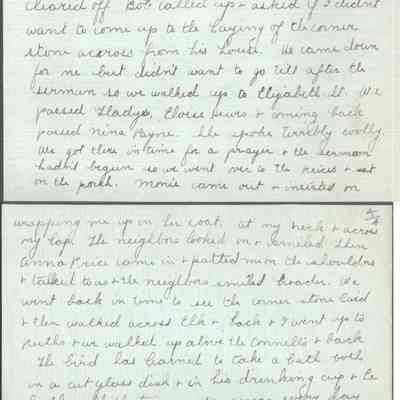 cleared off Bob called up & asked if I didn't
want to come up to the laying of the corner
stone accross from his house. He came down
for me but didn't want to go till after the
sermon so we walked up to Elizabeth St. We
passed Gladys, Eloise & coming back
passed Nina Payne. She spoke terribly coolly.
We got there in time for a prayer & the sermon
hadn't begun so we went over to the & sat
on the porch. Monie came out & insisted on
wrapping me up in her coat, at my neck & across
my lap. The neighbors looked on & smiled. Then
Anna Price came in & patted me on the shoulders
& talked to us & the neighbors smiled broader. We
went back in time to see the corner stone laid
& then walked across Elk & back & I went up to
Ruth's & we walked up above the Connells & back
The bird has learned to take a bath both
in a cut glass dish & in his drinking cup & he
every day